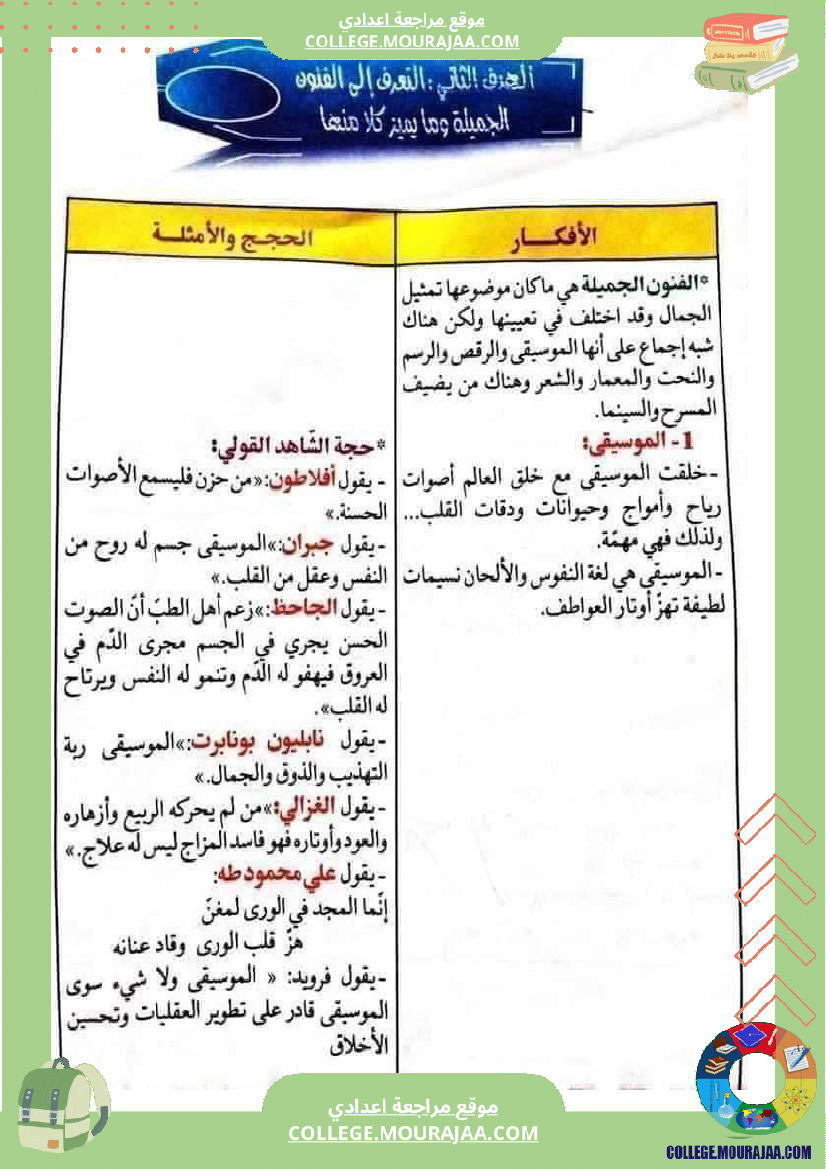 موقع مراجعة اعدادي
COLLEGE.MOURAJAA.COM
الهدف الثاني : التعرف إلى الفنون
الجميلة وما يميز كلا منها
الأفكـــار
*الفنون الجميلة هي ما كان موضوعها تمثيل
الجمال وقد اختلف في تعيينها ولكن هناك
شبه إجماع على أنها الموسيقى والرقص والرسم
والنحت والمعمار والشعر وهناك من يضيف
المسرح والسينما.
1- الموسيقى:
-خلقت الموسيقى مع خلق العالم أصوات
رياح وأمواج وحيوانات ودقات القلب...
ولذلك فهي مهمّة.
-الموسيقى هي لغة النفوس والألحان نسيمات
لطيفة تهزّ أوتار العواطف.
الحجج والأمثلـــة
*حجة الشّاهد القولي:
- يقول أفلاطون:«من حزن فليسمع الأصوات
الحسنة.»
-يقول جبران:»الموسيقى جسم له روح من
النفس وعقل من القلب.»
-يقول الجاحظ:»زعم أهل الطبّ أنّ الصوت
الحسن يجري في الجسم مجرى الدّم في
العروق فيهفو له الدّم وتنمو له النفس ويرتاح
له القلب».
-يقول نابليون بونابرت:»الموسيقى ربة
التهذيب والذوق والجمال.»
-يقول الغزالي:»من لم يحركه الربيع وأزهاره
والعود وأوتاره فهو فاسد المزاج ليس له علاج.»
-يقول علي محمود طه:
إنّما المجد في الورى لمغنّ
هزّ قلب الورى وقاد عنانه
-يقول فرويد: « الموسيقى ولا شيء سوى
الموسيقى قادر على تطوير العقليات وتحسين
الأخلاق
موقع مراجعة اعدادي
COLLEGE.MOURAJAA.COM
COLLEGE.MOURAJAA.COM